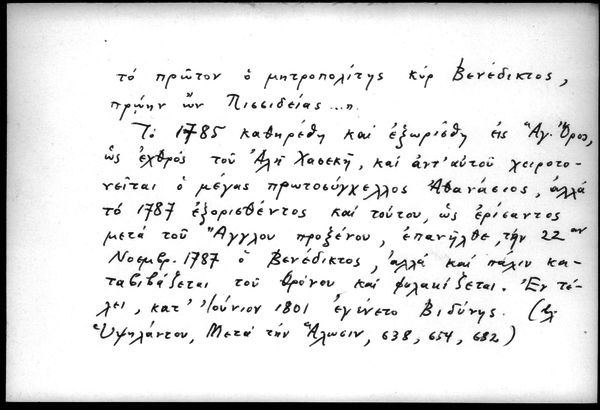 τό πρῶτον ὁ μητροπολίτης κύρ Βενέδικτος,
πρώην ὤν Πισσιδείας...".
Τό 1785 καθηρέθη καί ἐξωρίσθη εἰς Ἅγ. Ὄρος,
ὡς ἐχθρός τοῦ Ἀλῆ Χασεκῆ, καί ἀντ' αὐτοῦ χειροτο-
νεῖται ὁ μέγας πρωτοσύγκελλος Ἀθανάσιος, ἀλλά
τό 1787 ἐξορισθέντος καί τούτου, ὡς ἐρίσαντος
μετά τοῦ Ἄγγλου προξένου, ἐπανῆλθε, τήν 22αν
Νοεμβρ. 1787 ὁ Βενέδικτος, ἀλλά καί πάλιν κα-
ταβιβάζεται τοῦ θρόνου καί φυλακίζεται. Ἐν τέ-
λει, κατ' Ἰούνιον 1801 ἐγένετο Βιδύνης. (βλ.
Ὑψηλάντου, Μετά τήν Ἅλωσιν, 638, 654, 682)